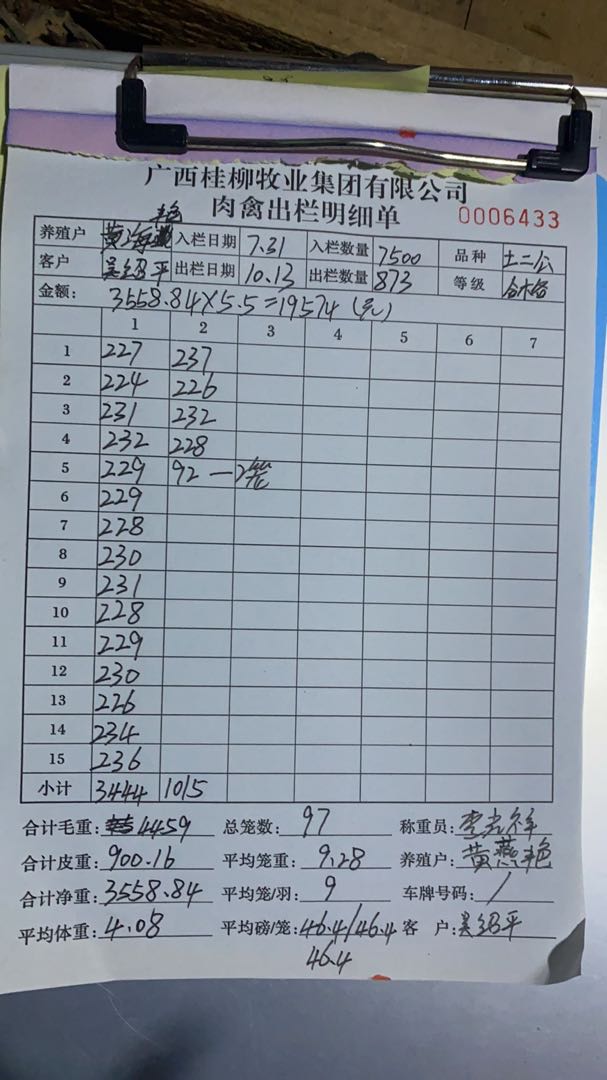 广西桂柳牧业集团有限公司
肉禽出栏明细单 0006433
艳
养殖户 黄海 入栏日期 7.31 入栏数量 7500 品种 土二公
客户 吴绍平 出栏日期 10.13 出栏数量 873 等级 合格
金额: 3558.84×5.5=19574(元)
1 2 3 4 5 6 7
1 227 237
2 224 226
3 231 232
4 232 228
5 229 92 — 2笼
6 229
7 228
8 230
9 231
10 228
11 229
12 230
13 226
14 234
15 236
小计 3444 1015
合计毛重: 4459 总笼数: 97 称重员:
合计皮重: 900.16 平均笼重: 9.28 养殖户: 黄燕艳
合计净重: 3558.84 平均笼/羽: 9 车牌号码: /
平均体重: 4.08 平均磅/笼: 46.4/46.4 客 户: 吴绍平
46.4